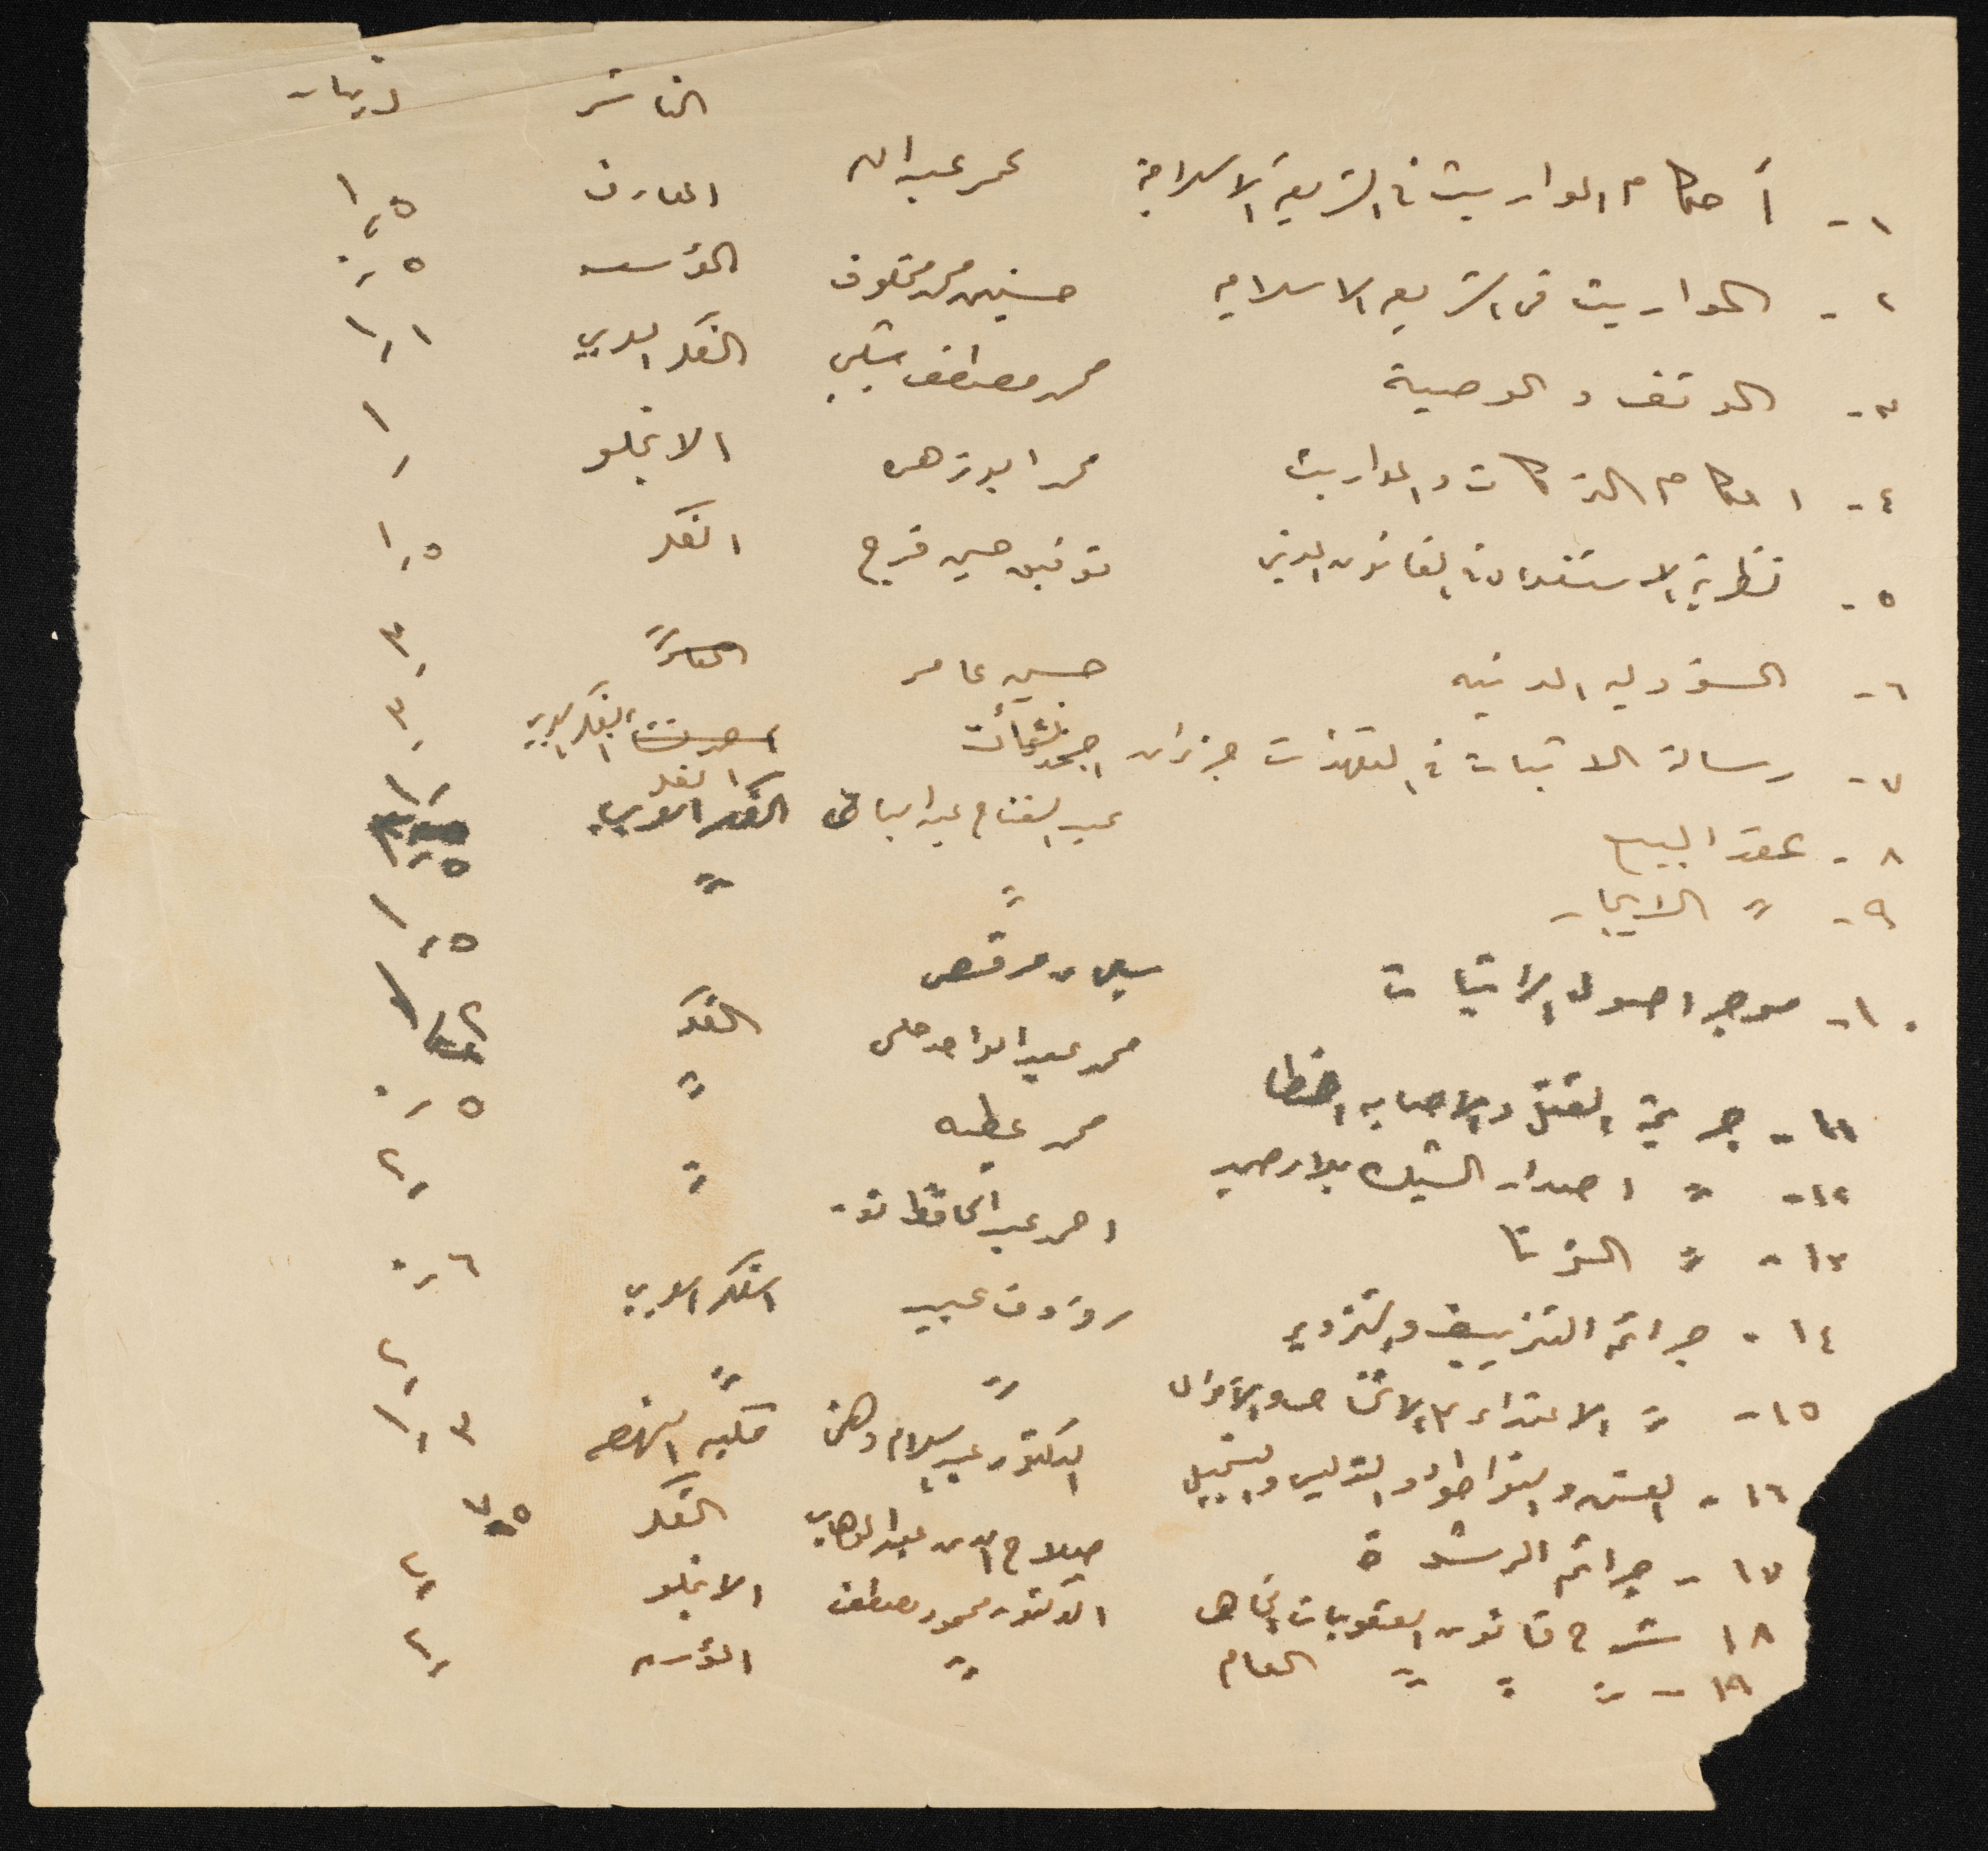 الناشر دينار
١- أحكام المواريث في الشريعة الاسلامية عمر عبدالله المعارف ١,٥
٢- المواريث في الشريعه الاسلاميه حسنين محمد مخلوف المؤسسه ٠,٥
٣- الوقف والوصية محمد مصطفى شلبي الفكر العربي ١,١
٤- احكام التركات والمواريث محمد ابوزهره الانجلو ١,
٥- نظرية الاستغلال في القانون المدني توفيق حسن فرج الفكر ١,٥
٦- المسؤوليه المدنيه حسين عامر ٣,
٧- رسالة الاثبات في التعهدات جزئان احمد نشأت الفكر العربي ٣,
٨- عقد البيع عبدالفتاح عبدالباقي الفكر العربي
٩- " الايجار " "
١٠- موجز اصول الاثبات سليمان مرقس ١,٥
١١- جريمة القتل والاصابه الخطا محمد عبدالواحد حلمي الفكر
١٢- " اصدار الشيك بلا رصيد محمد عطيه " ٠,٥
١٣- " الزنا احمد عبدالحافظ نور " ٢,
١٤- جرائم التزييف والتزوير رؤوف عبيد الفكر العربي ٠,٦
١٥- " الاعتداء على الاشخاص والأموال " " ٢,
١٦- الغش والتواطؤ والتدليس والتسجيل الدكتور عبدالسلام ذهني مكتبه النهضه ١,٣
١٧- جرائم الرشوة صلاح الدين عبدالوهاب الفكر
١٨ شرح قانون العقوبات الخاص الدكتور محمود مصطفى الانجلو ٢,
١٩- " " " العام " المؤسسه ٢,